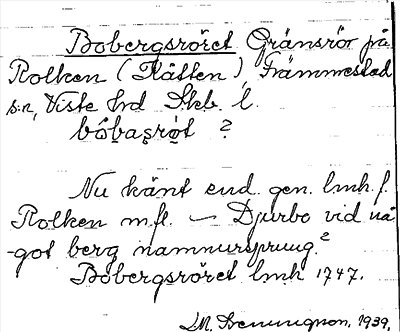 Bobergsröret Gränsrör på
Rolken (Flåtten), Främmestad
s:n, Viste hd Skb. l.
bỏ̂baṣrø̣t ?
Nu känt end. gen. lmh. f.
Rolken m.fl. — Djurbo vid nå
-got berg namnursprung?
Bobergsröret lmh 1747.
1939.